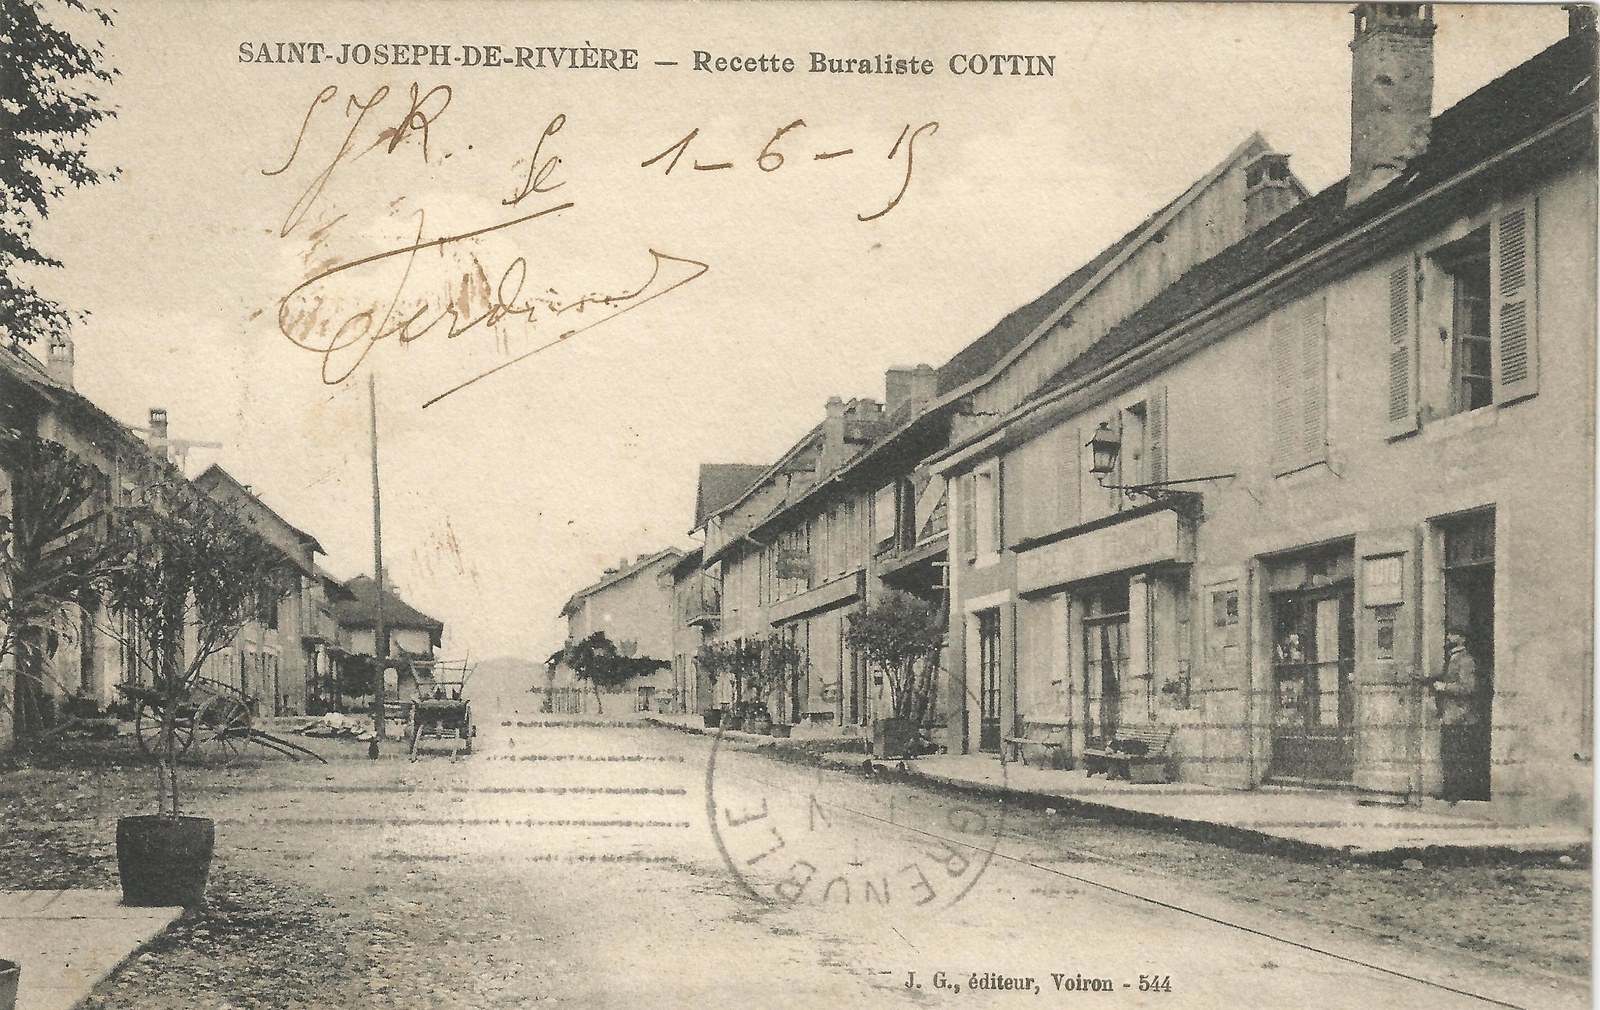 SAINT-JOSEPH-DE-RIVIÈRE — Recette Buraliste COTTIN
SJR. le 1-6-15
GRENOBLE
J. G., éditeur, Voiron - 544